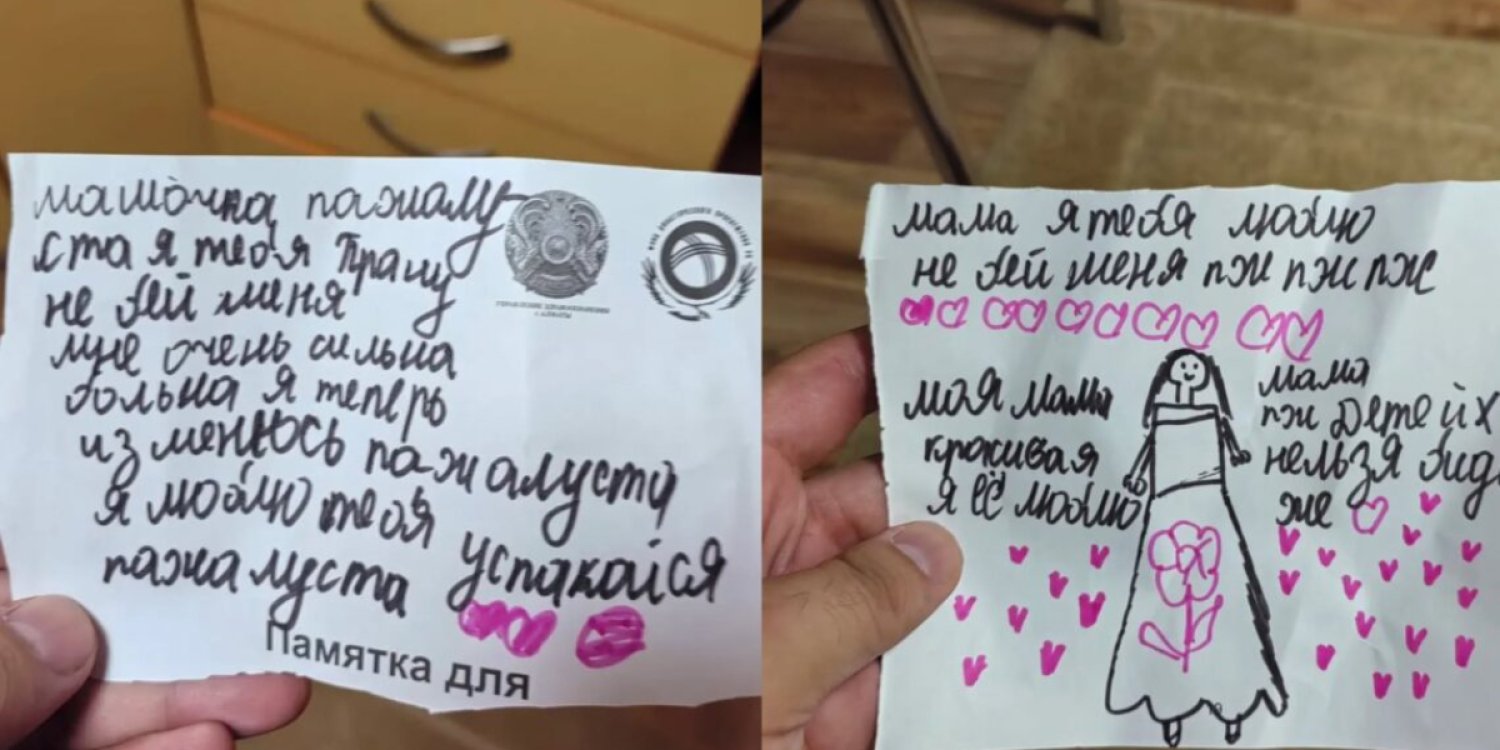 мамочка пажалу
ста я тебя Прашу
не бей меня
мне очень сильна
больна я теперь
изменюсь пажалуста
я люблю тебя успакойся
пажалуста
УПРАВЛЕНИЕ ЗДРАВООХРАНЕНИЯ
г. АЛМАТЫ
Памятка для
мама я тебя люблю
не бей меня пж пж пж
моя мама
кросивая
я её люблю
мама
пж Детейх
нельзя бид
же